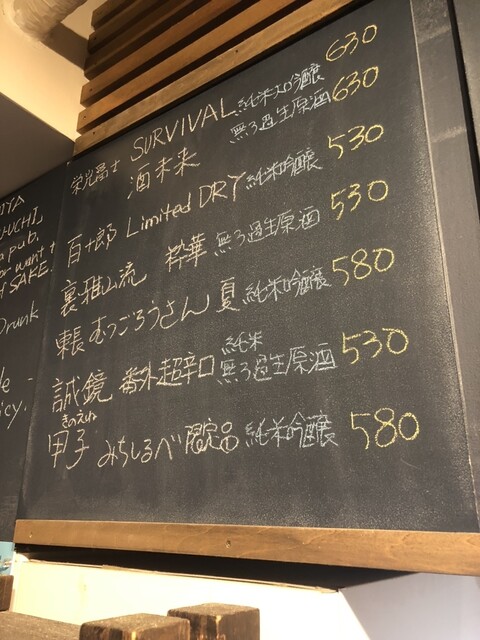 栄光冨士 SURVIVAL 純米大吟醸 630
酒未来 無ろ過生原酒 630
百十郎 Limited DRY 純米吟醸 530
裏雅山流 粋華 無ろ過生原酒 530
東長 むつごろうさん 夏 純米吟醸 580
誠鏡 番外超辛口 純米 無ろ過生原酒 530
きのえね
甲子 みちしるべ 限定品 純米吟醸 580
a pub.
want t
f SAKE.
Drunk